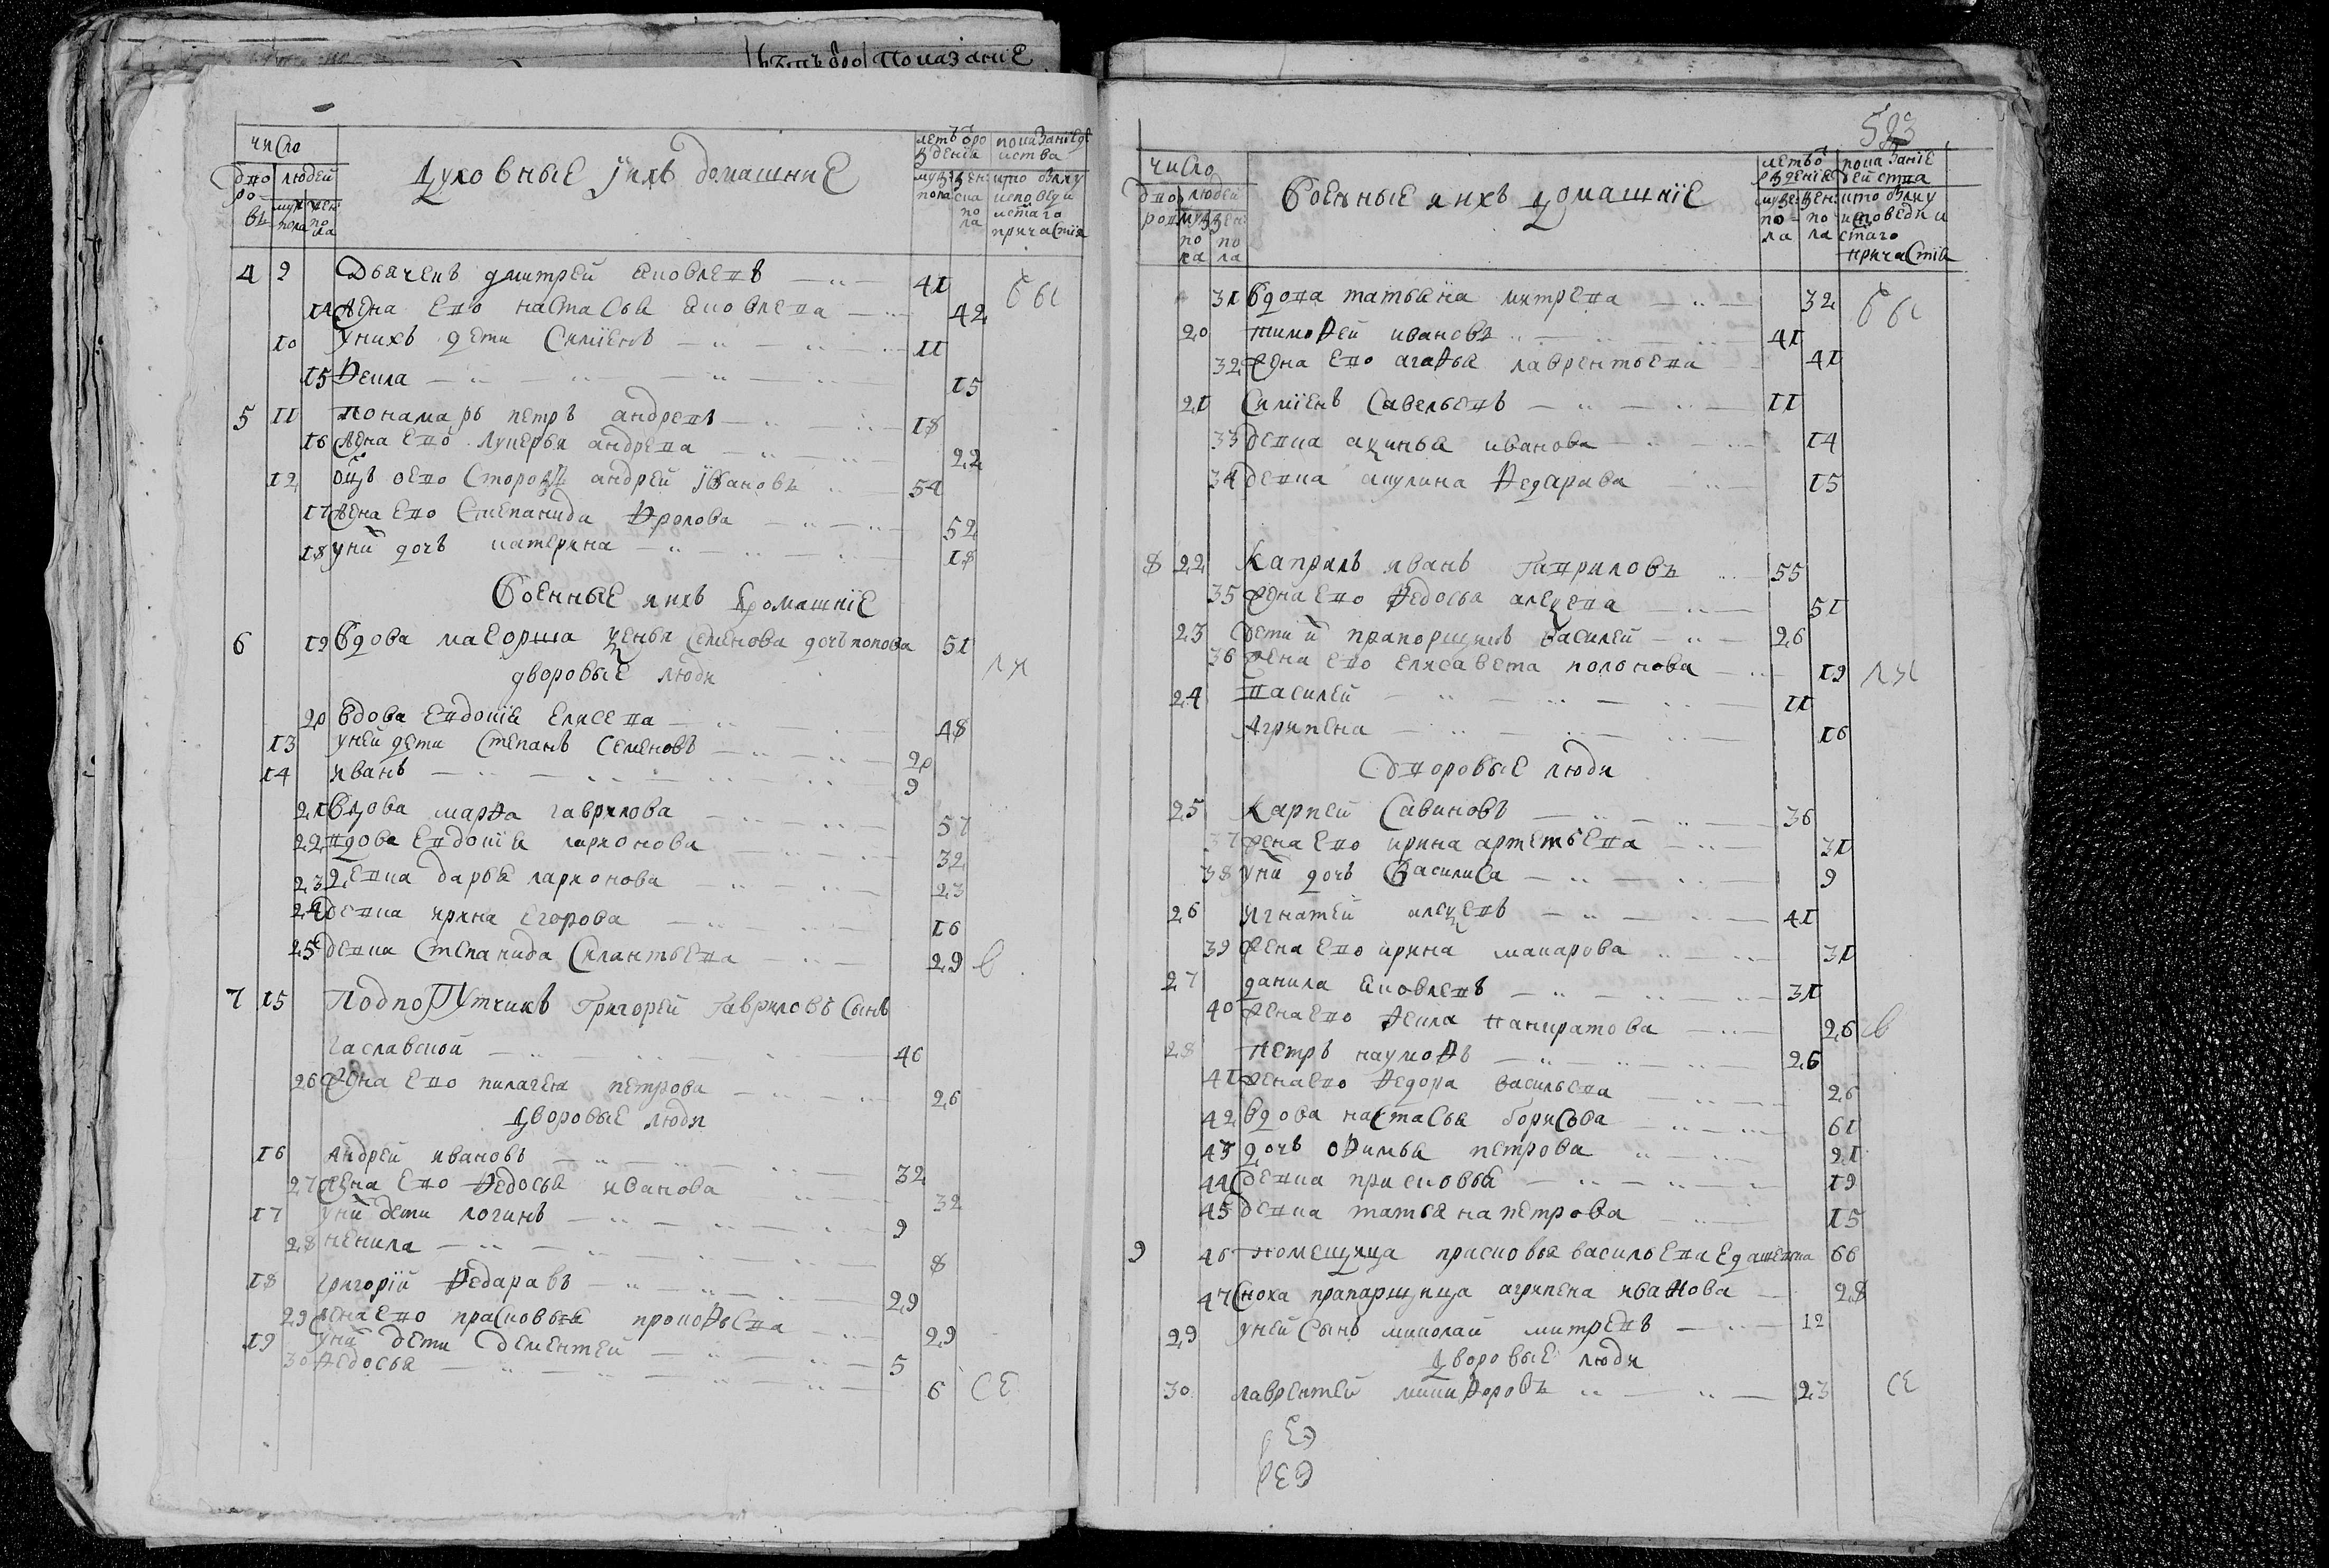 число
дво ров людей
муж пола жен пола
Духовные ïихъ домашние
летъ от рождения
муж пола жен пола
показание действа
кто былъ у исповеди и стаго причастия
4 9 Дьяченъ дмитреи яковлевъ 41
14 жена ево настасья яковлева 42
10 у нихъ дети Симïенъ 11
15 Фекла 15
5 11 Понамарь петръ андревъ 18
16 жена ево лукерья андрева 22
12 оцъ ево Сторожъ андрей ïвановъ 54
17 жена ево Степанида Фролова 52
18 у ни дочь катерина 18
Военные ихъ домашнïе
6 19 Вдова маеорша Семенова дочь попова 51
дворовые люди
20 вдова Евдокïя Елисева 48
13 у ней дети Степанъ Семеновъ 20
14 иванъ 9
21 Вдова марфа гаврилова 57
22 вдова Евдокïя ларионова 32
23 девка дарья ларионова 23
24 девка ирина егорова 16
25 девка Степанида Силантьева 29
7 15 Подпорутчикъ Григорей Гавриловъ Сынъ
Гаславской 46
26 жена ево пилагея петрова 26
Дворовые люди
16 Андрей ивановъ 32
27 жена ево Федосья иванова 32
17 у ни дети логинъ 9
28 ненила 8
18 григорïй Федаравъ 29
29 жена ево прасковья прокофьева 29
19 у ни дети дементей 5
30 Федосья 6
583
число
дво ров людей
муж по ла жен по ла
Военные ихъ домашнïе
летъ от рождения
муже по ла жен по ла
показанïе действа
кто былъ у исповеди и стаго причастïя
31 Вдова татьяна митрева 32
20 тимофей ивановъ 41
32 жена ево агафья лаврентьева 41
21 Симïенъ Савельевъ 11
33 девка аксинья иванова 14
34 девка акулина Федарава 15
8 22 Капралъ иванъ Гавриловъ 55
35 жена ево Федосья алексева 51
23 дети и прапорщикъ василей 26
36 жена ево елисавета полонова 19
24 василей 11
Агрипена 16
Дворовые люди
25 Карпей Савиновъ 36
37 жена ево ирина артемьева 31
38 у ни дочь Василиса 9
26 игнатей алексевъ 41
39 жена ево ирина макарова 31
27 данила яковлевъ 31
40 жена ево Фекла панкратова 26
28 петръ наумофъ 26
41 жена ево Федора васильева 26
42 вдова настасья борисова 61
43 дочь офимья петрова 21
44 девка прасковья 19
45 девка татьяна петрова 15
9 46 помещица прасковья васильева 66
47 Сноха прапарщица агрипена иванова 28
29 у ней Сынъ миколай митревъ 12
Дворовые люди
30 лаврентей микифоровъ 23